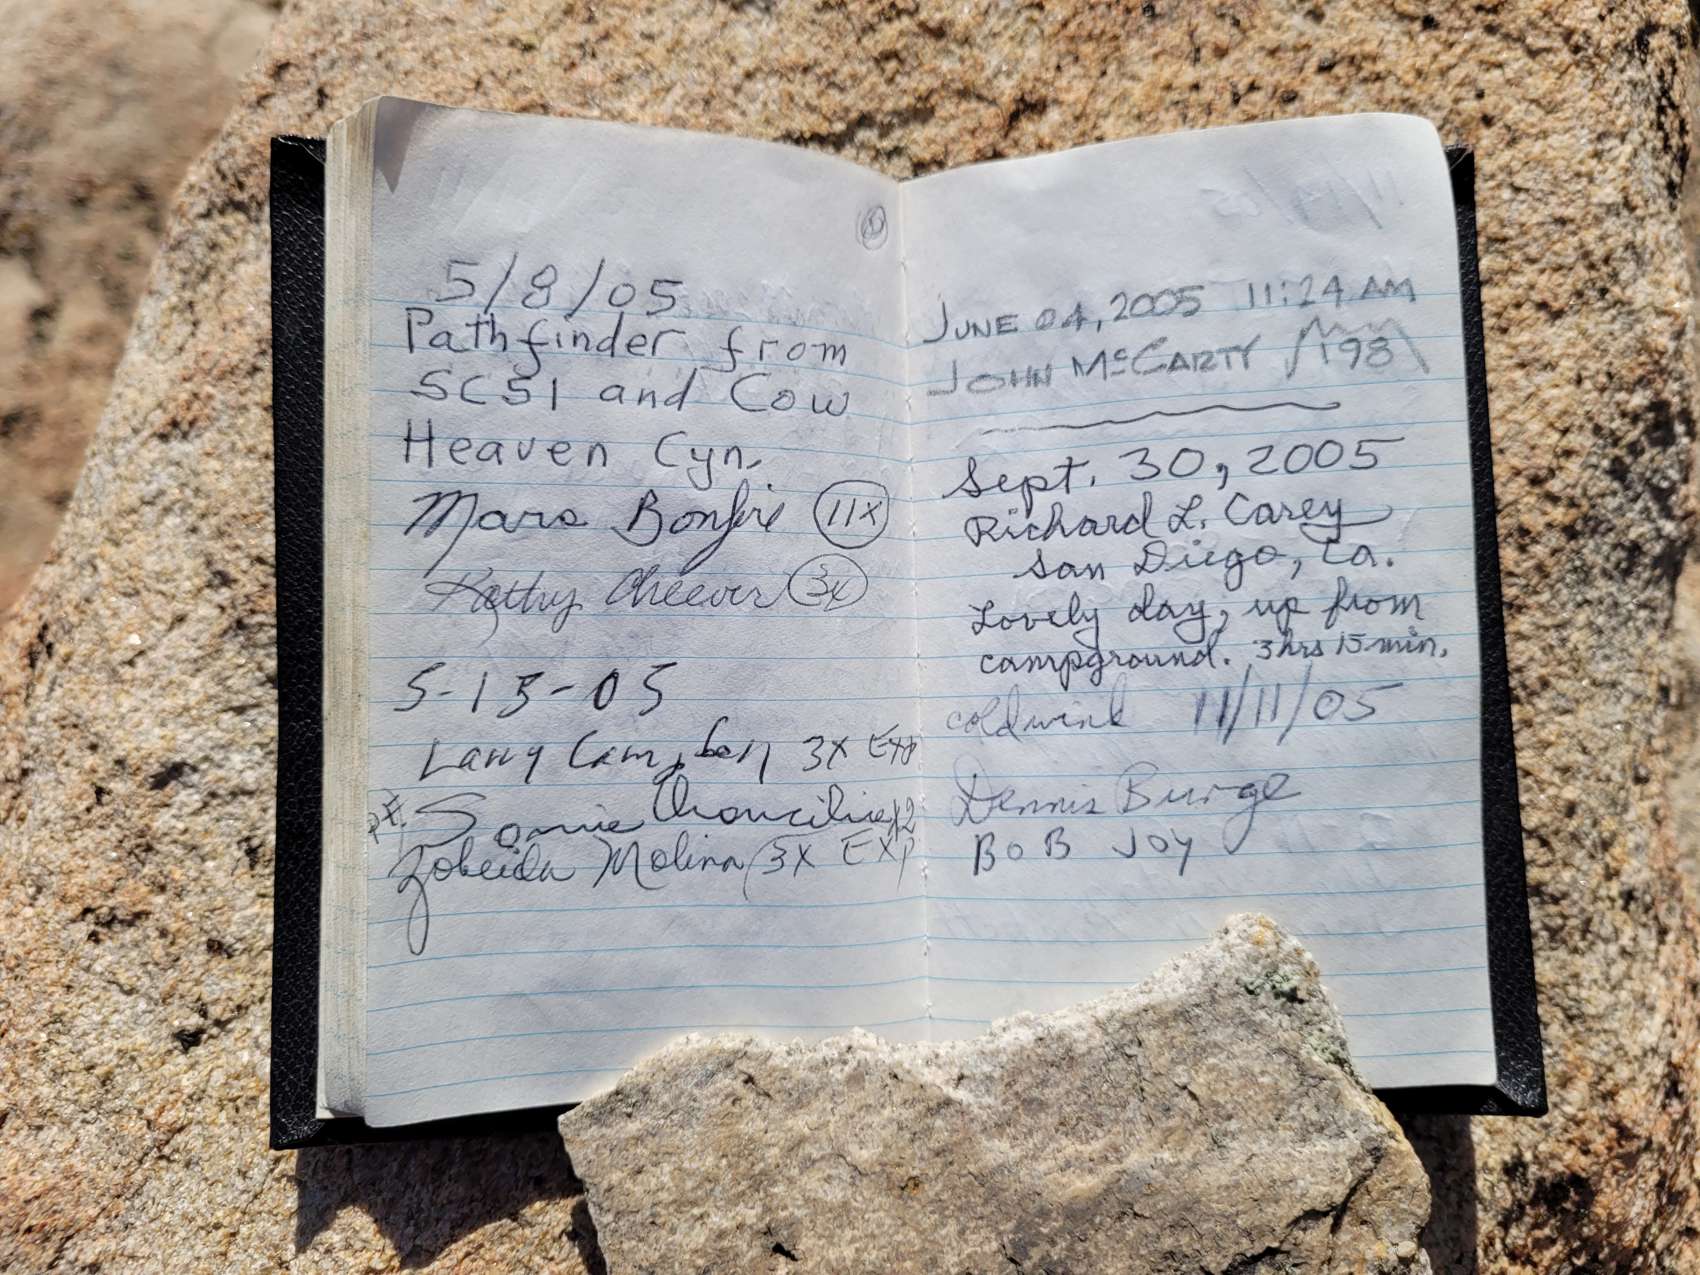 5/8/05
Pathfinder from
SC51 and Cow
Heaven Cyn.
Mars Bonfire 11x
Kathy Cheever 3x
5-15-05
Larry Campbell 3X Exp
x2
Zobeida Molina (3X EXP
JUNE 04, 2005 11:24 AM
JOHN McCARTY 198
Sept. 30, 2005
Richard L. Carey
San Diego, Ca.
Lovely day, up from
campground. 3 hrs 15 min.
coldwind 11/11/05
Dennis Burge
BOB JOY